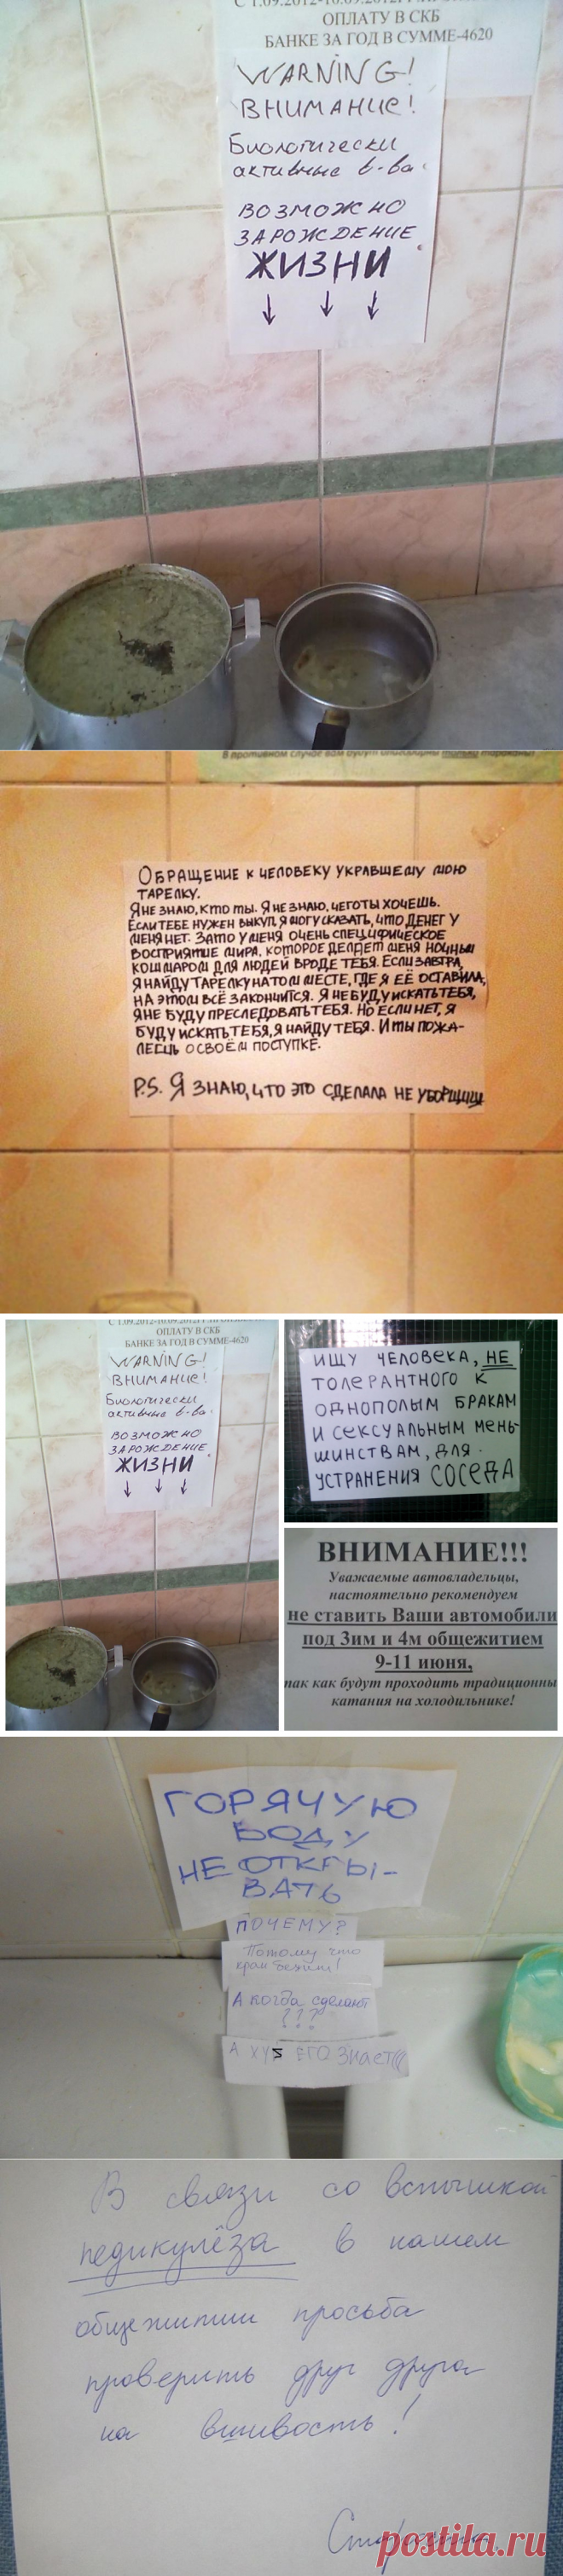 ОПЛАТУ В СКБ
БАНКЕ ЗА ГОД В СУММЕ-4620
WARNING!
ВНИМАНИЕ!
Биологически
активные в-ва.
ВОЗМОЖНО
ЗАРОЖДЕНИЕ
ЖИЗНИ
В противном случае вам будут
ОБРАЩЕНИЕ К ЧЕЛОВЕКУ УКРАВШЕМУ МОЮ
ТАРЕЛКУ.
Я НЕ ЗНАЮ, КТО ТЫ. Я НЕ ЗНАЮ, ЧЕГО ТЫ ХОЧЕШЬ.
ЕСЛИ ТЕБЕ НУЖЕН ВЫКУП, Я МОГУ СКАЗАТЬ, ЧТО ДЕНЕГ У
МЕНЯ НЕТ. ЗАТО У МЕНЯ ОЧЕНЬ СПЕЦИФИЧЕСКОЕ
ВОСПРИЯТИЕ МИРА, КОТОРОЕ ДЕЛАЕТ МЕНЯ НОЧНЫМ
КОШМАРОМ ДЛЯ ЛЮДЕЙ ВРОДЕ ТЕБЯ. ЕСЛИ ЗАВТРА,
Я НАЙДУ ТАРЕЛКУ НА ТОМ МЕСТЕ, ГДЕ Я ЕЁ ОСТАВИЛА,
НА ЭТОМ ВСЁ ЗАКОНЧИТСЯ. Я НЕ БУДУ ИСКАТЬ ТЕБЯ,
Я НЕ БУДУ ПРЕСЛЕДОВАТЬ ТЕБЯ. НО ЕСЛИ НЕТ, Я
БУДУ ИСКАТЬ ТЕБЯ, Я НАЙДУ ТЕБЯ. И ТЫ ПОЖА-
ЛЕЕШЬ О СВОЁМ ПОСТУПКЕ.
P.S. Я ЗНАЮ, ЧТО ЭТО СДЕЛАЛА НЕ УБОРЩИЦА
ОПЛАТУ В СКБ
БАНКЕ ЗА ГОД В СУММЕ-4620
WARNING!
ВНИМАНИЕ!
Биологически
активные в-ва.
ВОЗМОЖНО
ЗАРОЖДЕНИЕ
ЖИЗНИ
ИЩУ ЧЕЛОВЕКА, НЕ
ТОЛЕРАНТНОГО К
ОДНОПОЛЫМ БРАКАМ
И СЕКСУАЛЬНЫМ МЕНЬ-
ШИНСТВАМ, ДЛЯ
УСТРАНЕНИЯ СОСЕДА
ВНИМАНИЕ!!!
Уважаемые автовладельцы,
настоятельно рекомендуем
не ставить Ваши автомобили
под 3им и 4м общежитием
9-11 июня,
так как будут проходить традиционны
катания на холодильнике!
ГОРЯЧУЮ
ВОДУ
НЕ ОТКРЫ-
ВАТЬ
ПОЧЕМУ?
Потому что
кран бежит!
А когда сделают
???
А ХУЙ ЕГО ЗНАЕТ(((
В связи со вспышкой
педикулёза в нашем
общежитии просьба
проверить друг друга
на вшивость!
postila.ru